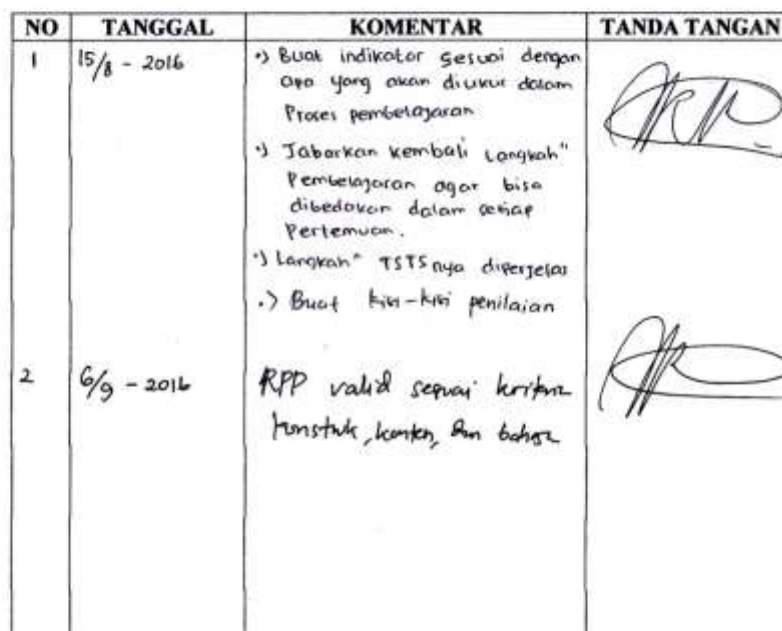 NO TANGGAL KOMENTAR TANDA TANGAN
1 15/8 - 2016 •) Buat indikator sesuai dengan
apa yang akan diukur dalam
Proses pembelajaran
•) Jabarkan kembali Langkah"
Pembelajaran agar bisa
dibedakan dalam setiap
Pertemuan.
•) Langkah" TSTS nya diperjelas
•) Buat kisi-kisi penilaian
2 6/9 - 2016 RPP valid sesuai kriteria
konstruk, konten, dan bahasa